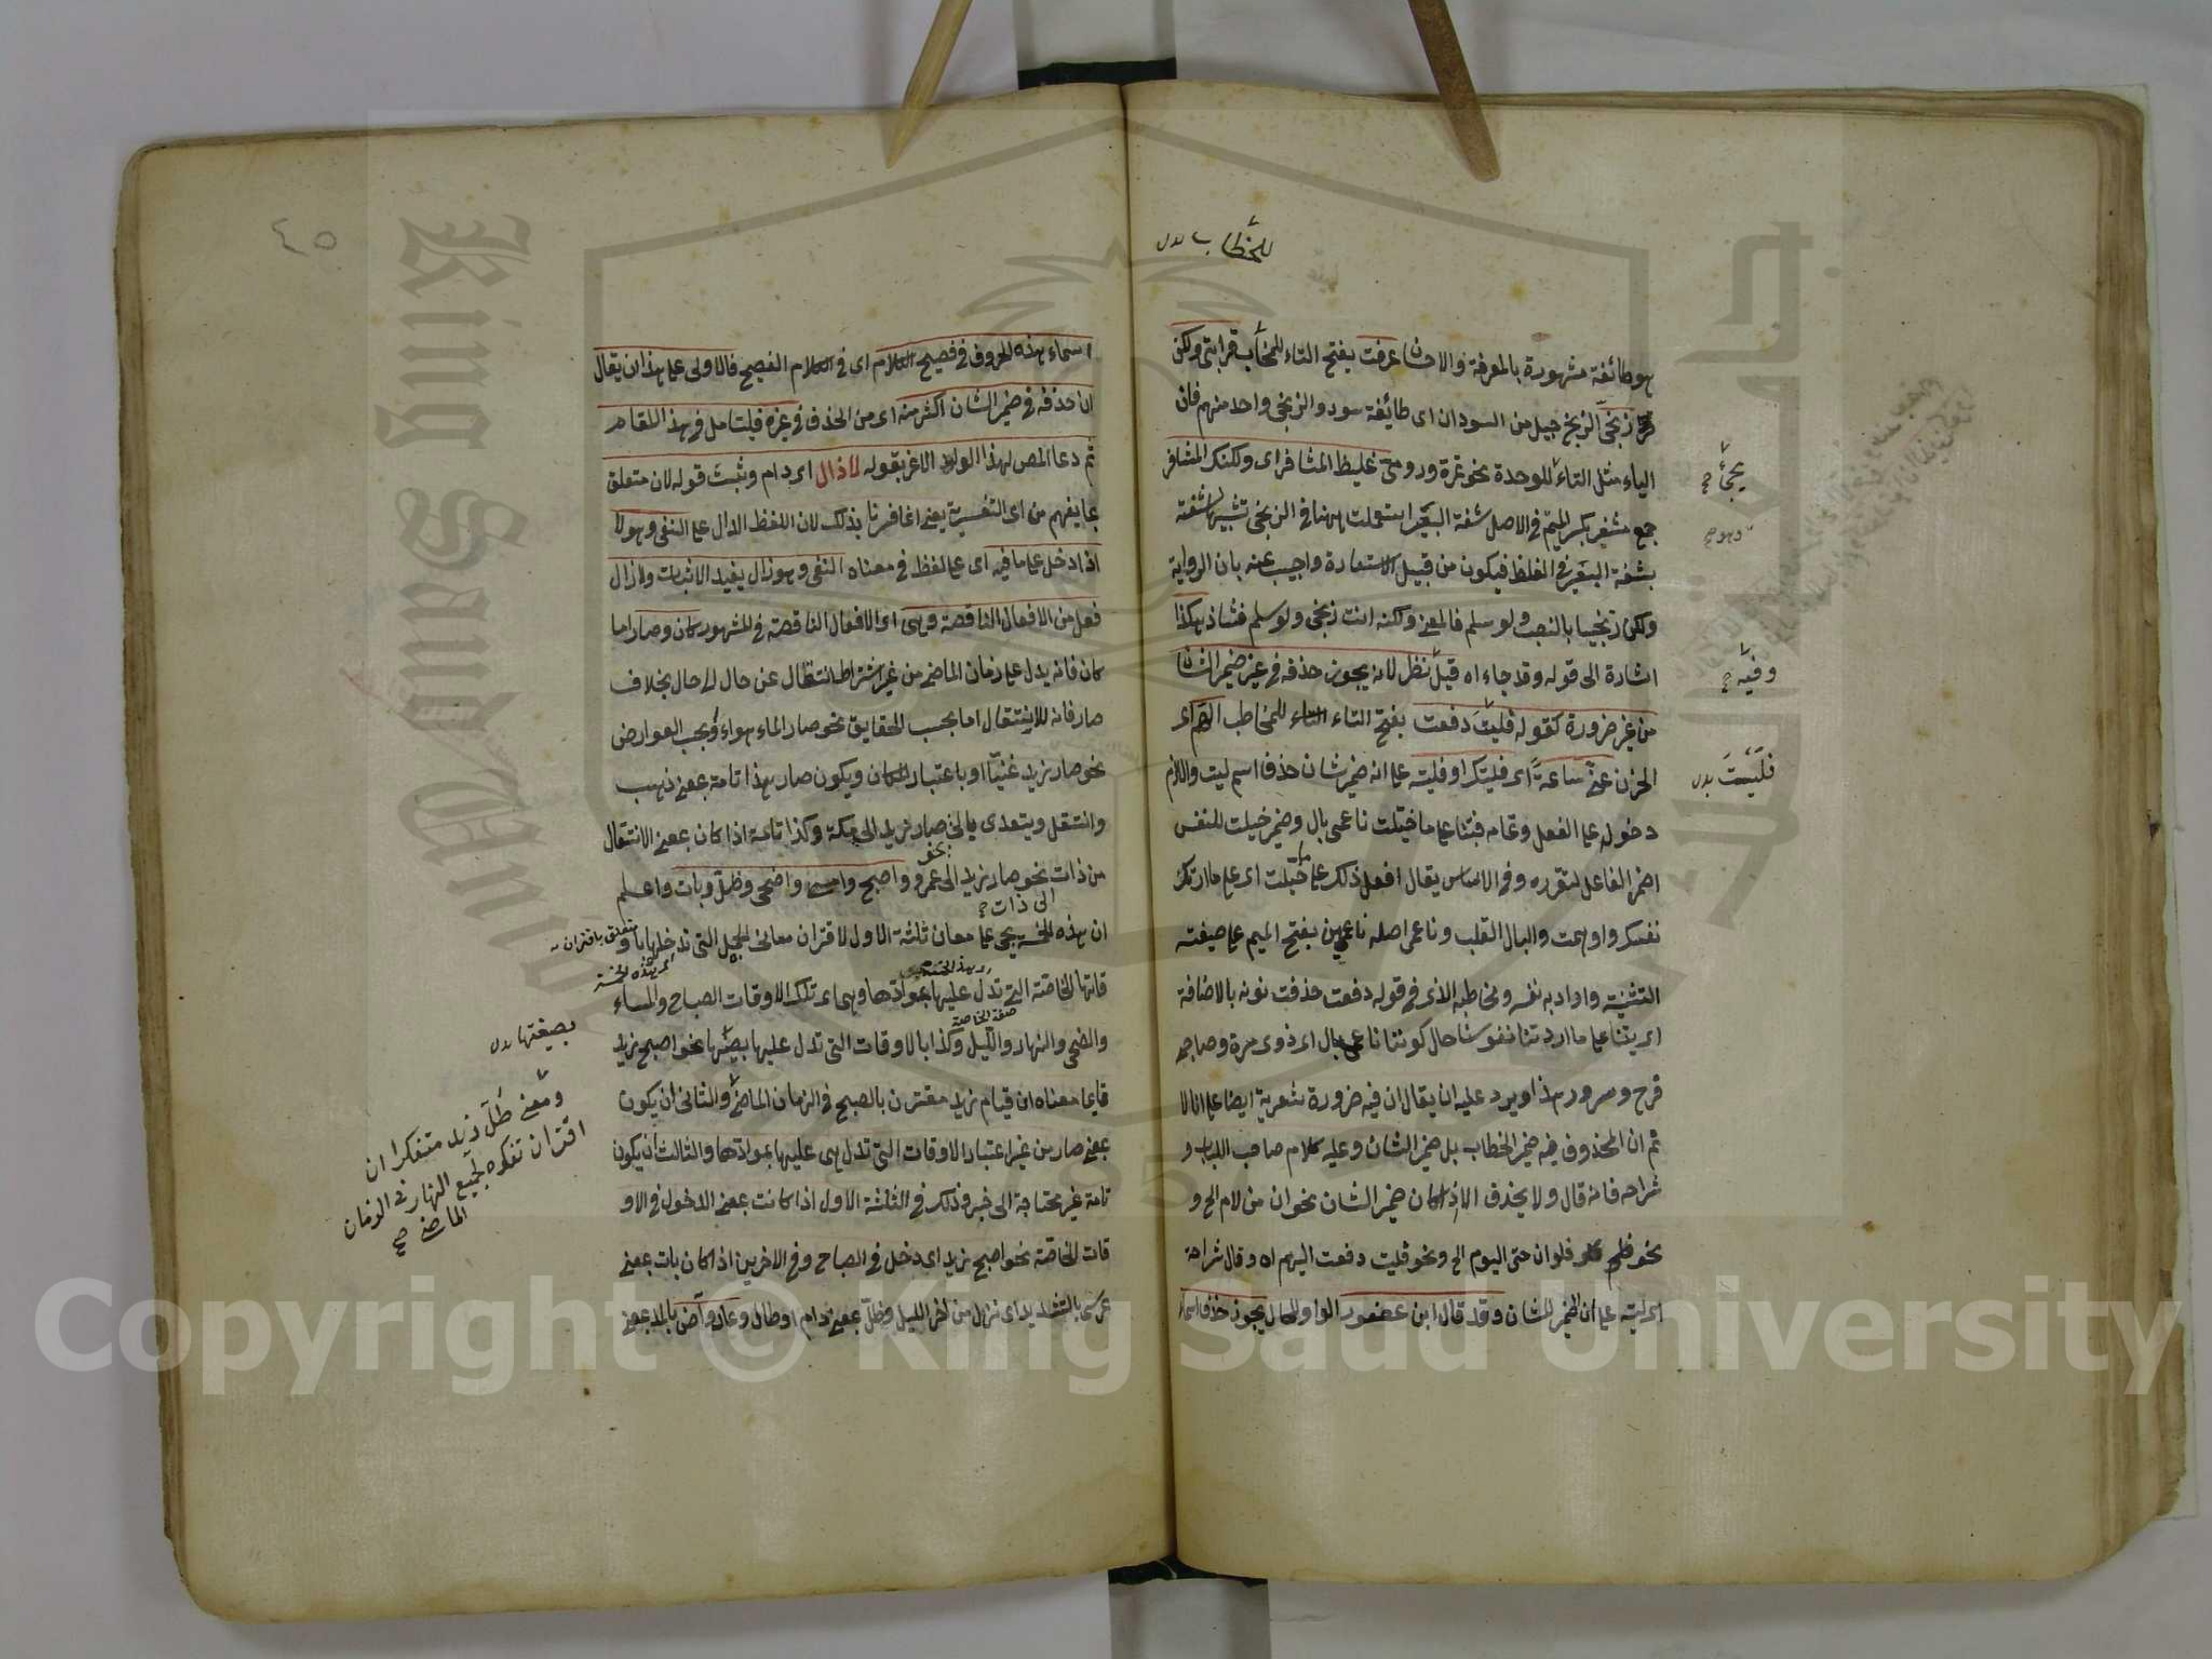 للخطاب بدل
هو طائفة مشهورة بالمعرفة والاحسان عرفت بفتح التاء للمخاطب قرابتى ولكن
زنجى الزنج جيل من السودان اى طائفة سود والزنجى واحد منهم فان
الياء مثل التاء للوحدة نحو تمرة ورومى غليظ المشافر اى ولكنك المشافر
جمع مشفر بكسر الميم فى الاصل شفة البعير استعملت ههنا فى الزنجى تشبيها لشفته
بشفة البعير فى الغلظ فيكون من قبيل الاستعارة واجيب عنه بان الرواية
ولكن زنجيا بالنصب ولو سلم فالمعنى ولكنه انت زنجى ولو سلم فشاذ هكذا
اشارة الى قوله وقد جاء اه قيل نظر لانه يجوز حذفه فى غير ضمير الشان
من غير ضرورة كقوله فليت دفعت بفتح التاء للمخاطب الهم اى
الحزن عنى ساعة اى فليتك او فليته على انه ضمير شان حذف اسم ليت واللازم
دخوله على الفعل وتمامه فبتنا على ما خيلت ناعمى بال وضمير خيلت للنفس
اضمر الفاعل لتقرره وفى الاساس يقال افعل ذلك على ما خيلت اى على ما ارتك
نفسك واوهمت والبال القلب وناعمى اصله ناعمين بفتح الميم على صيغة
التثنية واراد به نفسه ومخاطبه الذى فى قوله دفعت حذفت نونه بالاضافة
اى بتنا على ما ارتنا نفوسنا حال كوننا ناعمى بال اى ذوى مسرة وصاحبى
فرح وسرور هذا ويرد عليه ان يقال ان فيه ضرورة شعرية ايضا على انا لا
ثم ان المحذوف فيه ضمير الخطاب بل ضمير الشان وعليه كلام صاحب اللباب و
شراحه فانه قال ولا يحذف الا اذا كان ضمير الشان نحو ان من لام الخ و
نحو فلو ان حق اليوم الخ ونحو فليت دفعت الهم اه وقال شراحه
اى ليته على ان الضمير للشان وقد قال ابن عصفور الواو للحال يجوز حذف اسماء
يجئ صح
وفيه صح
فليت بدل
٤٥
اسماء هذه الحروف فى فصيح الكلام اى فى الكلام الفصيح فالاولى على هذا ان يقال
ان حذفه فى ضمير الشان اكثر منه اى من الحذف فى غيره فليتامل فى هذا المقام
ثم دعا المص لهذا الولد الاغر بقوله لا زال اى دام وثبت قوله لان متعلق
بما يفهم من اى التفسيرية يعنى انما فسرنا بذلك لان اللفظ الدال على النفى وهو لا
اذا دخل على ما فيه اى على لفظ فى معناه النفى وهو زال يفيد الاثبات ولا زال
فعل من الافعال الناقصة وهى اى الافعال الناقصة فى المشهور كان وصار اما
كان فانه يدل على زمان الماضى من غير اشتراط انتقال عن حال الى حال بخلاف
صار فانه للانتقال اما بحسب الحقايق نحو صار الماء هواء وبحسب العوارض
نحو صار زيد غنيا او باعتبار المكان ويكون صار بهذا تامة بمعنى ذهب
وانتقل ويتعدى بالى نحو صار زيد الى مكة وكذا تامة اذا كان بمعنى الانتقال
من ذات نحو صار زيد الى عمرو واصبح وامسى واضحى وظل وبات واعلم
الى ذات صح
ان هذه الخمسة يجئ على معان ثلثة الاول لاقتران معانى الجمل التى تدخلها باو
متعلق باقتران
اى هذه الخمسة
قاتها الخاصة التى تدل عليها بموادها وهى اى تلك الاوقات الصباح والمساء
صفة الخاصة
والضحى والنهار والليل وكذا بالاوقات التى تدل عليها بصيغها نحو اصبح زيد
قايما معناه ان قيام زيد مقترن بالصبح فى الزمان الماضى والثانى ان يكون
بمعنى صار من غير اعتبار الاوقات التى تدل هى عليها بموادها والثالث ان يكون
تامة غير محتاجة الى خبر وذلك فى الثلثة الاول اذا كانت بمعنى الدخول فى الاو
قات الخاصة نحو اصبح زيد اى دخل فى الصباح وفى الاخرين اذا كان بات بمعنى
عرس بالتشديد اى نزل من اخر الليل وظل بمعنى دام او طال وعاد وآض بالمد بمعنى
بصيغتها بدل
ومعنى ظل زيد متفكرا ان
اقتران تفكره بجميع النهار فى الزمان
الماضى صح
King Saud University
Copyright © King Saud University